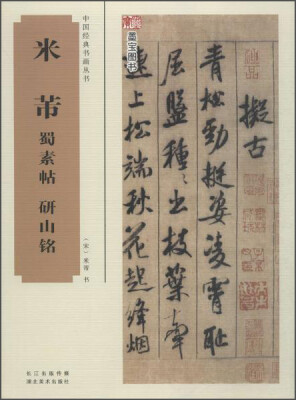 中国经典书画丛书
米芾
蜀素帖 研山铭
（宋）米芾 书
长江出版传媒
湖北美术出版社
墨宝图书
拟古
青松劲挺姿凌霄耻
屈盘种种出枝叶牵
连上松端秋花起绛烟